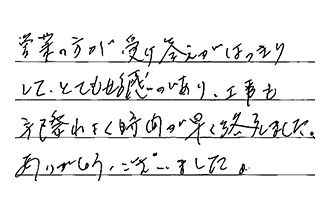 営業の方が受け答えがはっきり
して、とても好感があり、工事も
予定通りに時間が早く終了しました。
ありがとうございました。